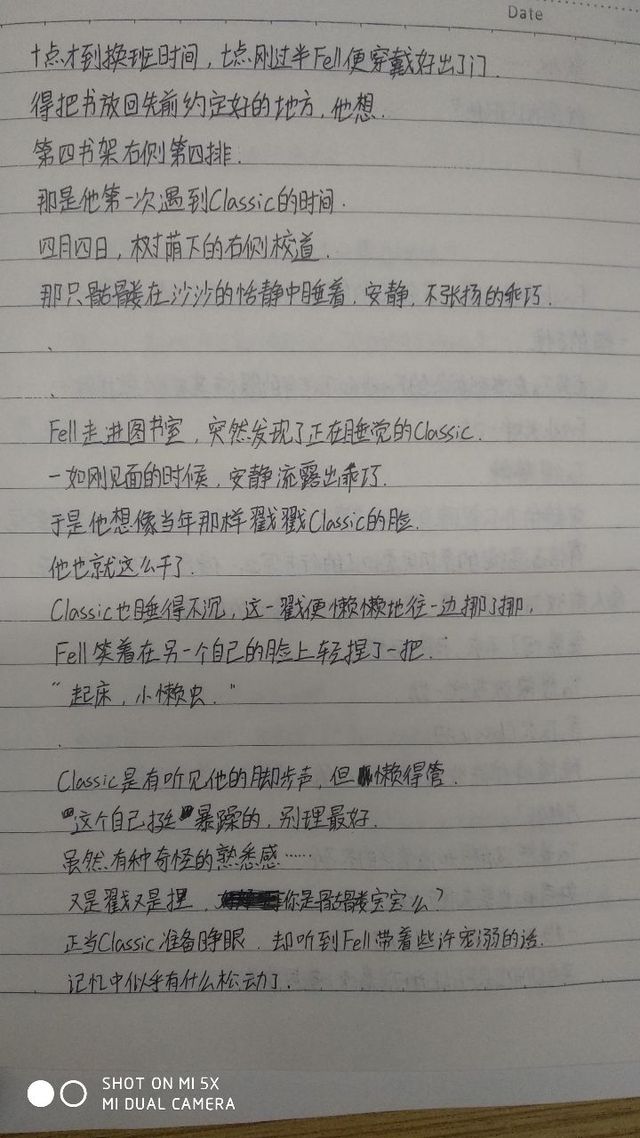 Date
十点才到换班时间，七点刚过半Fell便穿戴好出了门.
得把书放回先前约定好的地方，他想.
第四书架右侧第四排.
那是他第一次遇到Classic的时间.
四月四日，树荫下的右侧校道.
那只骷髅在沙沙的恬静中睡着，安静，不张扬的乖巧.
、
、
Fell走进图书室，突然发现了正在睡觉的Classic.
一如刚见面的时候，安静流露出乖巧.
于是他想像当年那样戳戳Classic的脸.
他也就这么干了.
Classic也睡得不沉，这一戳便懒懒地往一边挪了挪，
Fell笑着在另一个自己的脸上轻捏了一把.
“起床，小懒虫.”
、
Classic是有听见他的脚步声，但懒得管.
这个自己挺暴躁的，别理最好.
虽然有种奇怪的熟悉感……
又是戳又是捏，你是骷髅宝宝么？
正当Classic准备睁眼，却听到Fell带着些许宠溺的话.
记忆中似乎有什么松动了.
SHOT ON MI 5X
MI DUAL CAMERA